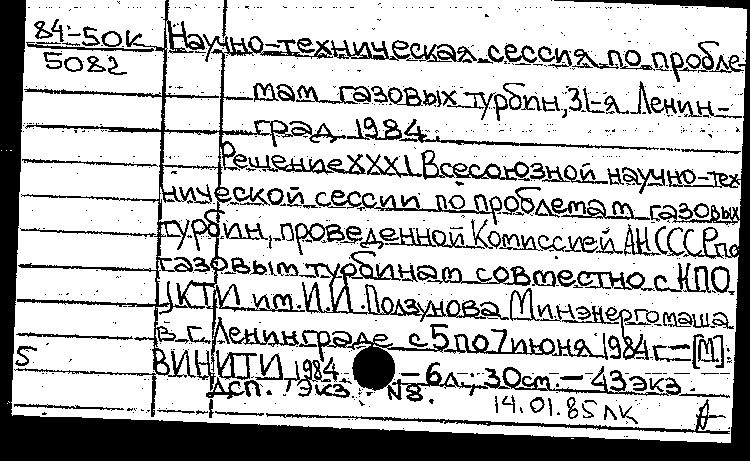 84-50к Научно-техническая сессия по пробле-
5082
мам газовых турбин, 31-я Ленин-
град, 1984.
Решение XXXI Всесоюзной научно-тех
нической сессии по проблемам газовых
турбин, проведенной Комиссией АН СССР по
газовым турбинам совместно с НПО
ЦКТИ им. И.И. Ползунова Минэнергомаша
в г. Ленинграде с 5 по 7 июня 1984 г. — [М]:
5 ВИНИТИ 1984. — 6л.; 30см. — 43 экз.
Дсп. Экз. N8.
14.01.85 ЛК